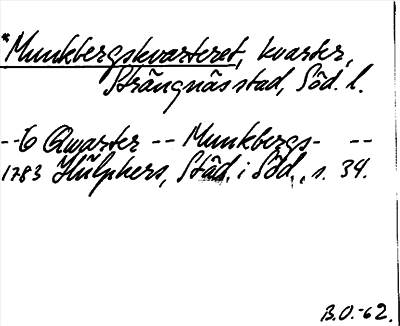 *Munkbergskvarteret, kvarter,
Strängnäs stad, Söd. l.
-- 6 Qwarter -- Munkbergs- --
1783 Hülphers, Städ. i Söd., s. 34.
B.O.-62.